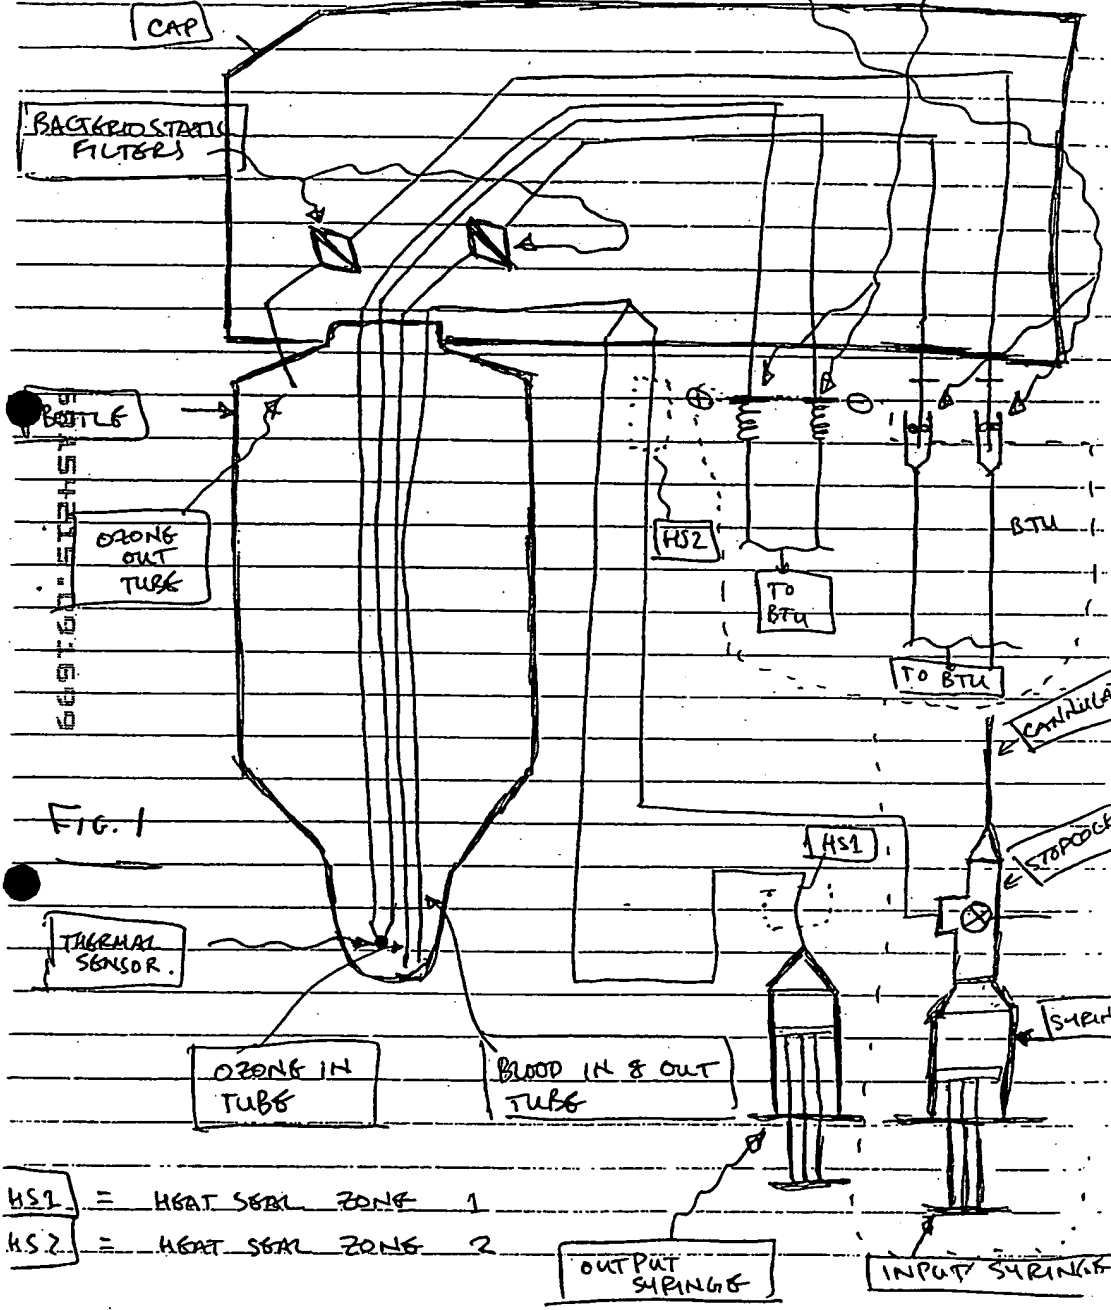 CAP
BACTERIOSTATIC
FILTERS
BOTTLE
OZONE
OUT
TUBE
HS2
TO
BTU
BTU
TO BTU
CANNULA
FIG. 1
HS1
THERMAL
SENSOR.
OZONE IN
TUBE
BLOOD IN & OUT
TUBE
HS1 = HEAT SEAL ZONE 1
HS2 = HEAT SEAL ZONE 2
OUTPUT
SYRINGE
INPUT SYRINGE